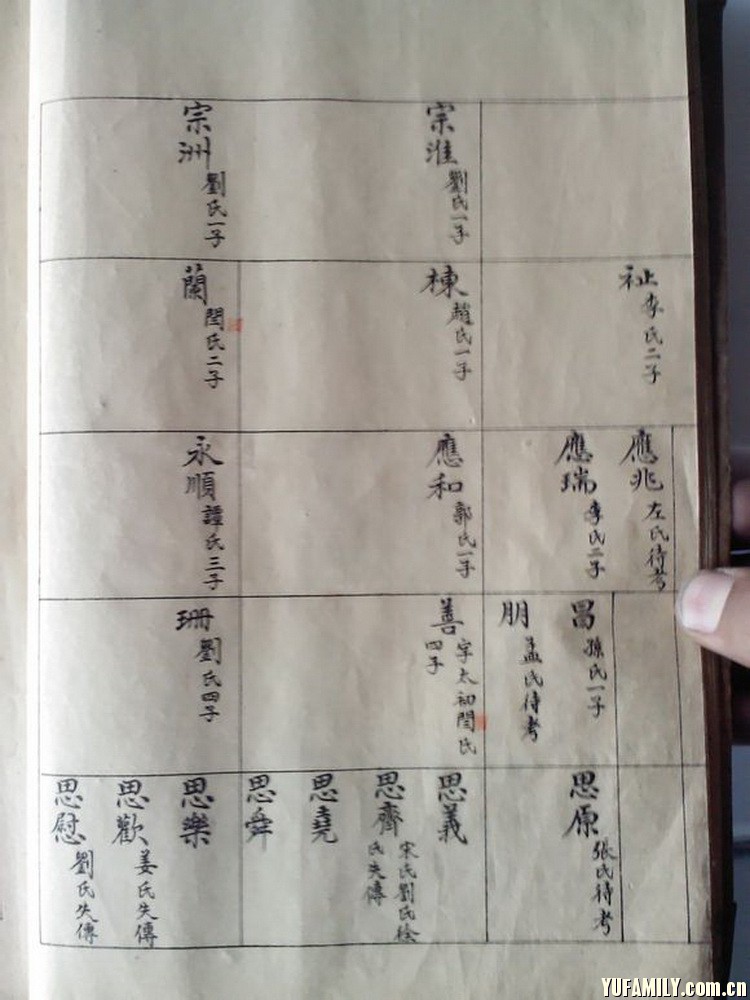 宗淮
劉氏一子
宗洲
劉氏一子
祉
李氏二子
棟
趙氏一子
蘭
閆氏二子
應兆
左氏待考
應瑞
李氏二子
應和
郭氏一子
永順
譚氏三子
昌
孫氏一子
朋
孟氏待考
善
字太初閆氏
四子
珊
劉氏四子
思原
張氏待考
思義
思齊
宋氏劉氏徐
氏失傳
思堯
思舜
思樂
思歡
姜氏失傳
思慰
劉氏失傳
YUFAMILY.com.cn